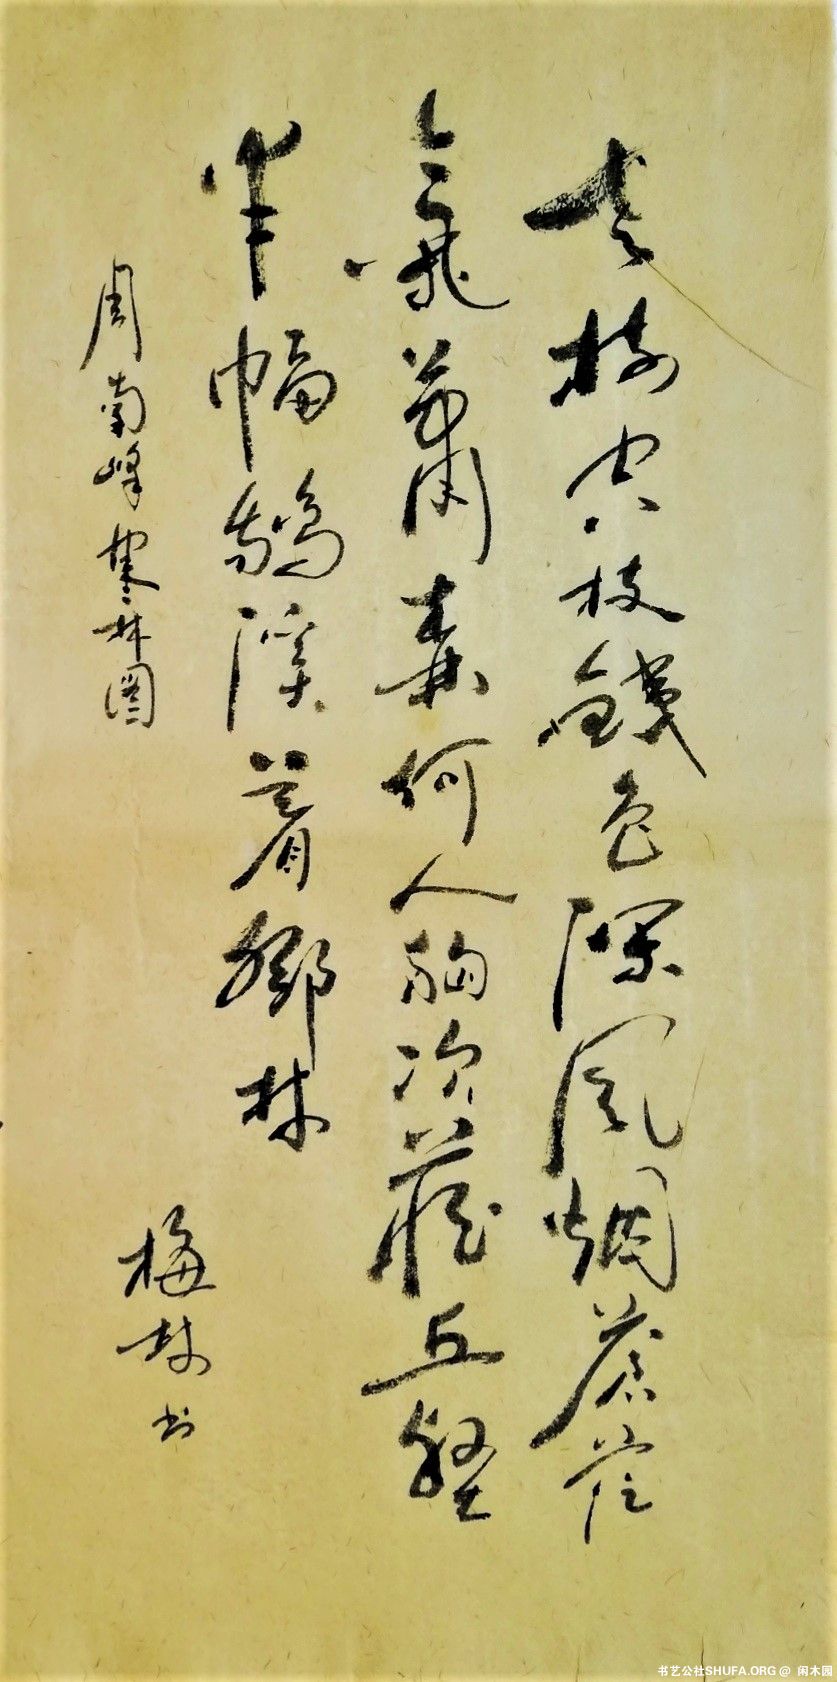 老樹空枝鐵色深風烟蒼茫
氣蕭森何人胸次藏丘壑
半幅鵝溪着鄧林
周南峰寒林圖
梅林书
书艺公社SHUFA.ORG @ 闲木园